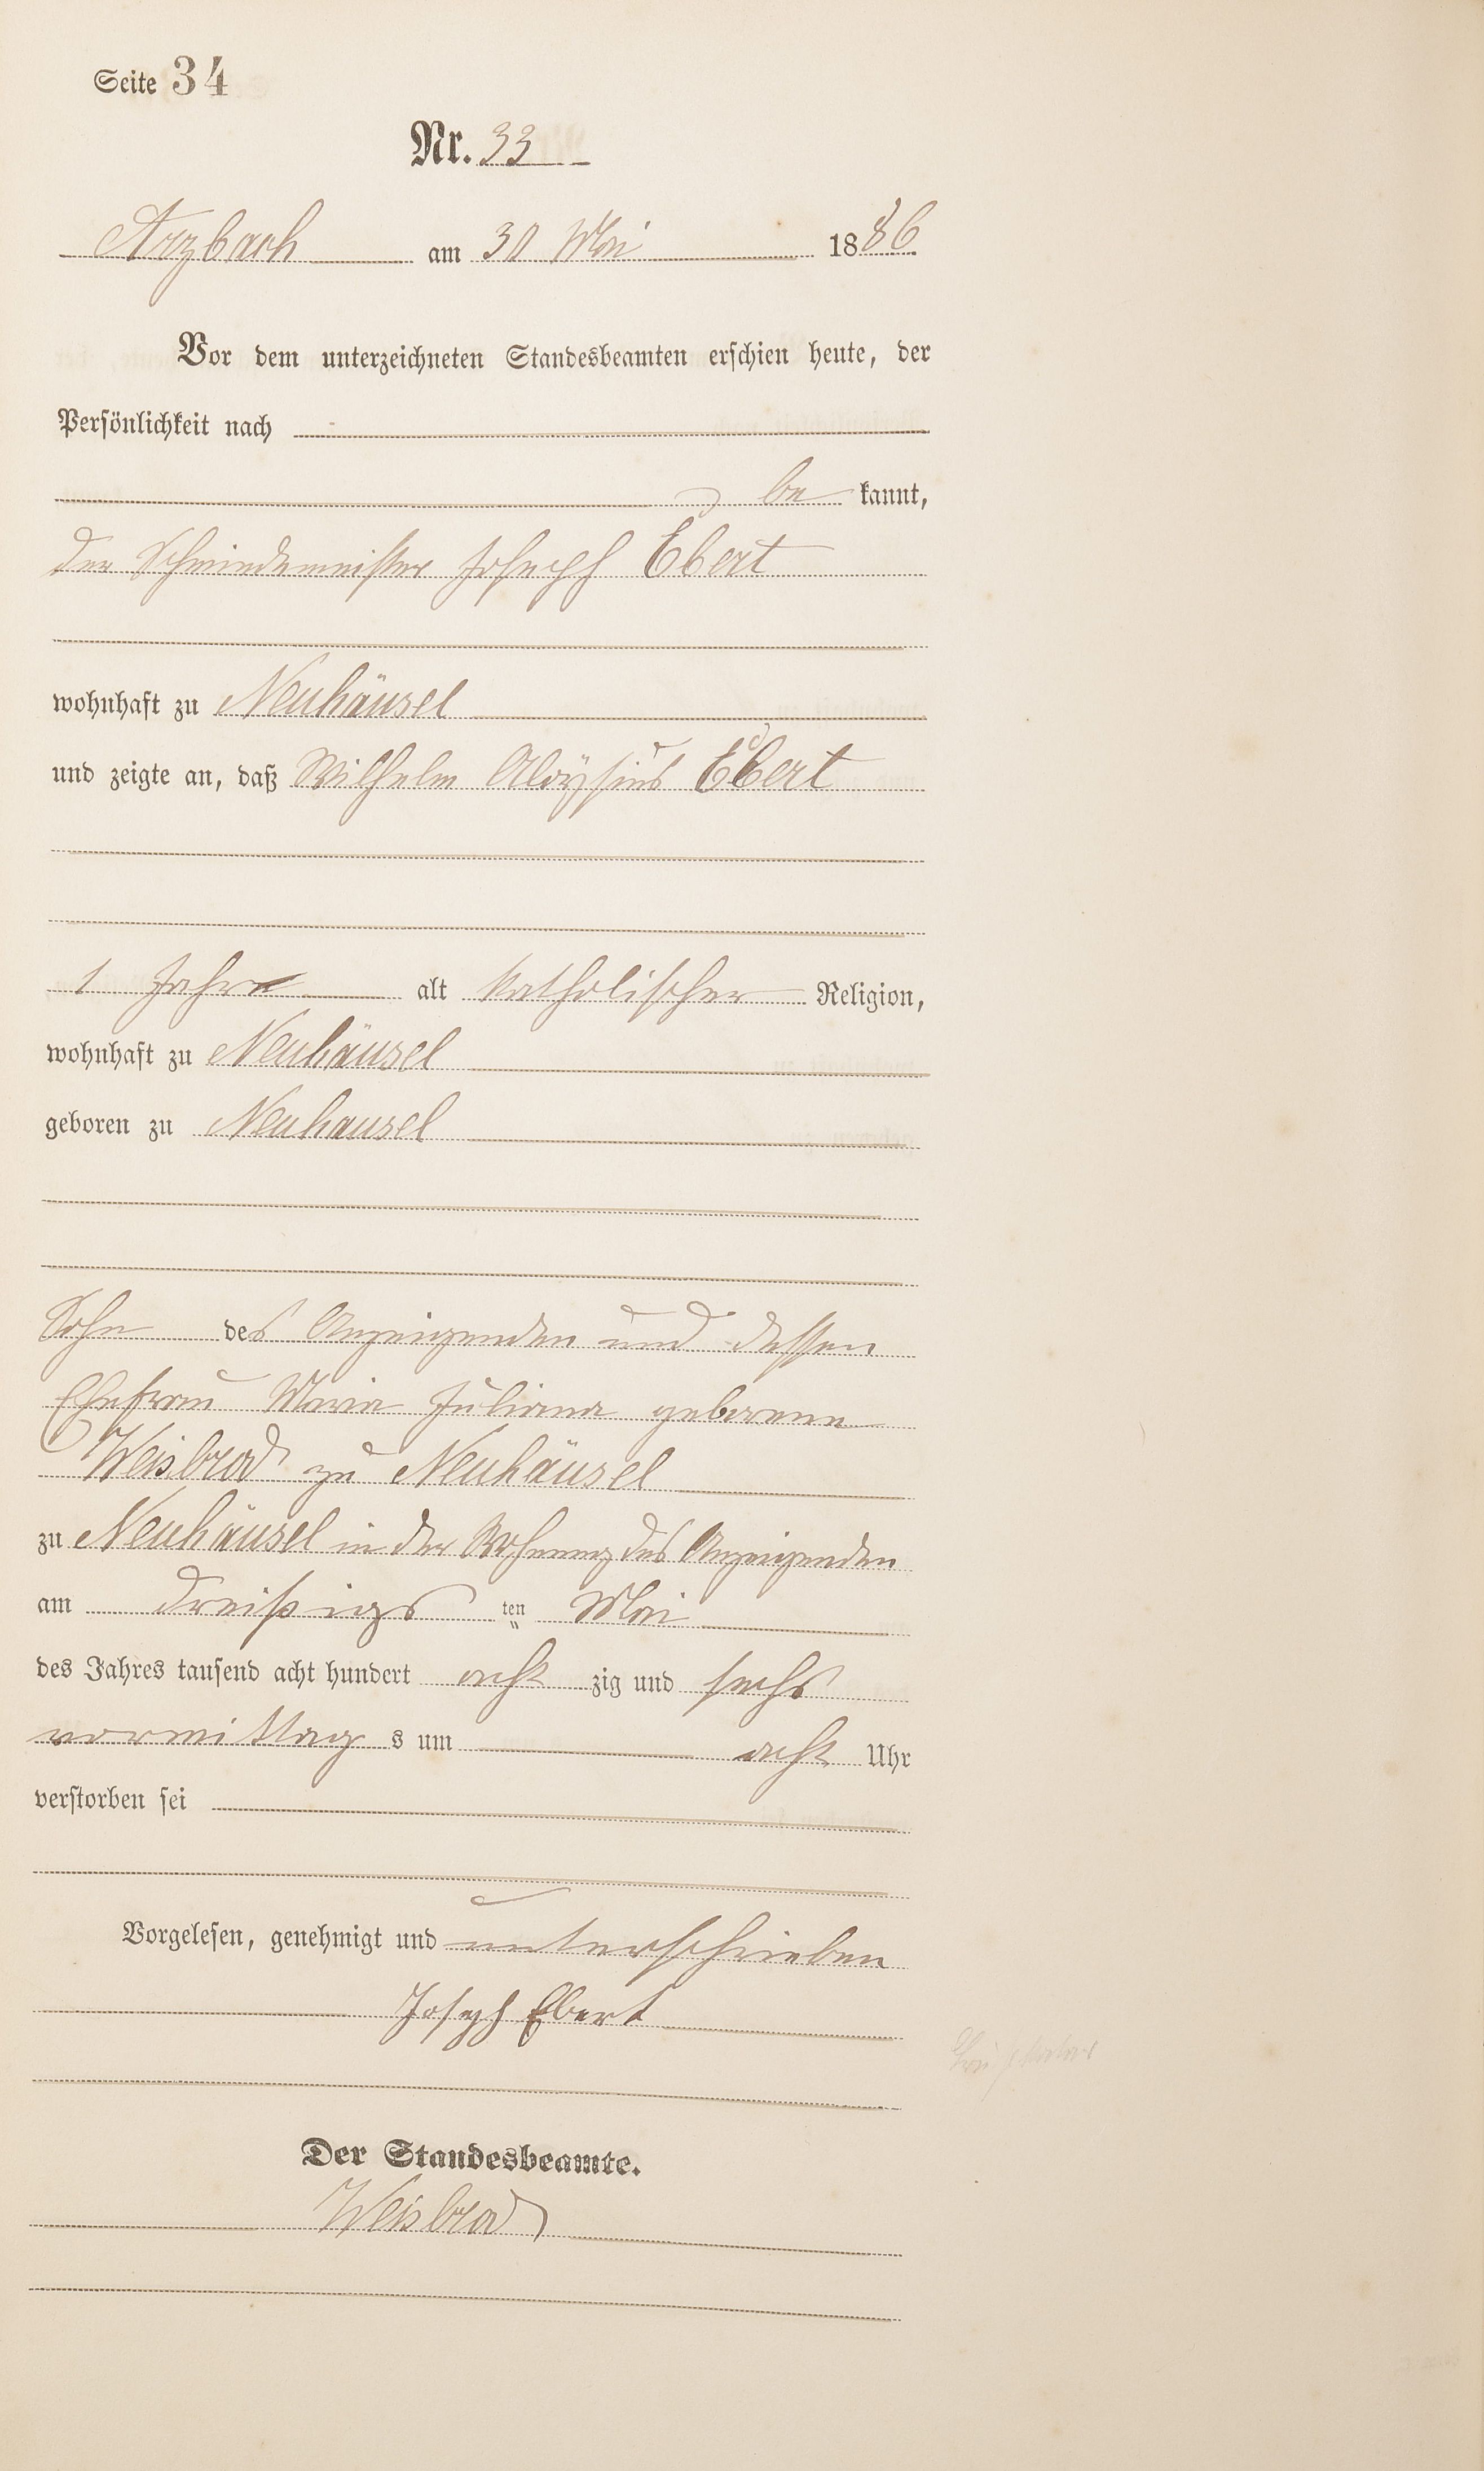 Seite 34
Nr. 33
Arzbach am 30 Mai 1886.
Vor dem unterzeichneten Standesbeamten erschien heute, der
Persönlichkeit nach
be kannt,
der Schmiedemeister Joseph Ebert
wohnhaft zu Neuhäusel
und zeigte an, daß Wilhelm Aloÿsius Ebert
1 Jahr alt katholischer Religion,
wohnhaft zu Neuhäusel
geboren zu Neuhausel
Sohn des Anzeigenden und dessen
Ehefrau Maria Juliana geborene
Weisbrod zu Neuhäusel
zu Neuhäusel in der Wohnung des Anzeigenden
am dreißigs ten Mai
des Jahres tausend acht hundert acht zig und sechs
vormittag s um acht Uhr
verstorben sei
Vorgelesen, genehmigt und unterschrieben
Joseph Ebert
Der Standesbeamte.
Weisbrod